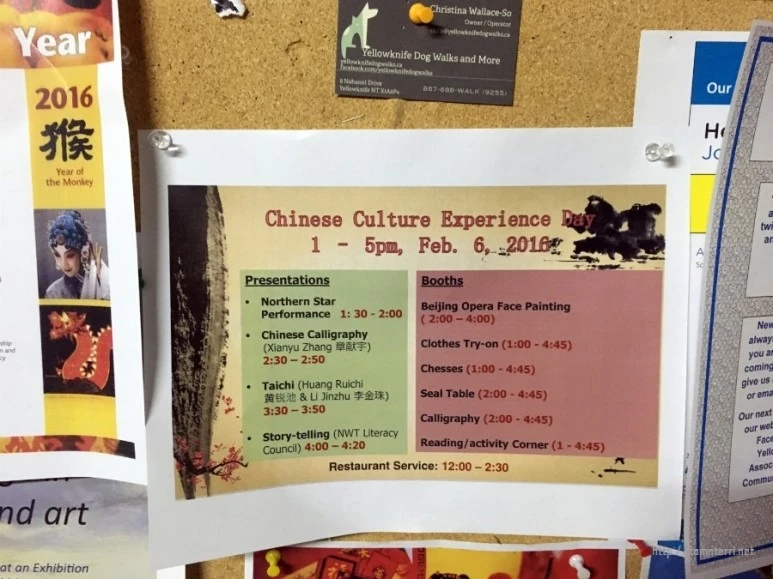 Year
2016
猴
Year of
the Monkey
nd art
at an Exhibition
Christina Wallace-So
Owner / Operator
Yellowknife Dog Walks and More
yellowknifedogwalks.ca
facebook.com/yellowknifedogwalks
6 Nahanni Drive
Yellowknife NT
867-688-WALK (9255)
Chinese Culture Experience Day
1 - 5pm, Feb. 6, 2016
Presentations
• Northern Star
Performance 1: 30 - 2:00
• Chinese Calligraphy
(Xianyu Zhang 章献宇)
2:30 – 2:50
• Taichi (Huang Ruichi
黄锐池 & Li Jinzhu 李金珠)
3:30 – 3:50
• Story-telling (NWT Literacy
Council) 4:00 – 4:20
Booths
Beijing Opera Face Painting
( 2:00 – 4:00)
Clothes Try-on (1:00 - 4:45)
Chesses (1:00 - 4:45)
Seal Table (2:00 - 4:45)
Calligraphy (2:00 - 4:45)
Reading/activity Corner (1 - 4:45)
Restaurant Service: 12:00 – 2:30
Our
He
Jo
New
alway
you an
coming
give us
or ema
Our next
our web
Face
Yello
Assoc
Commun